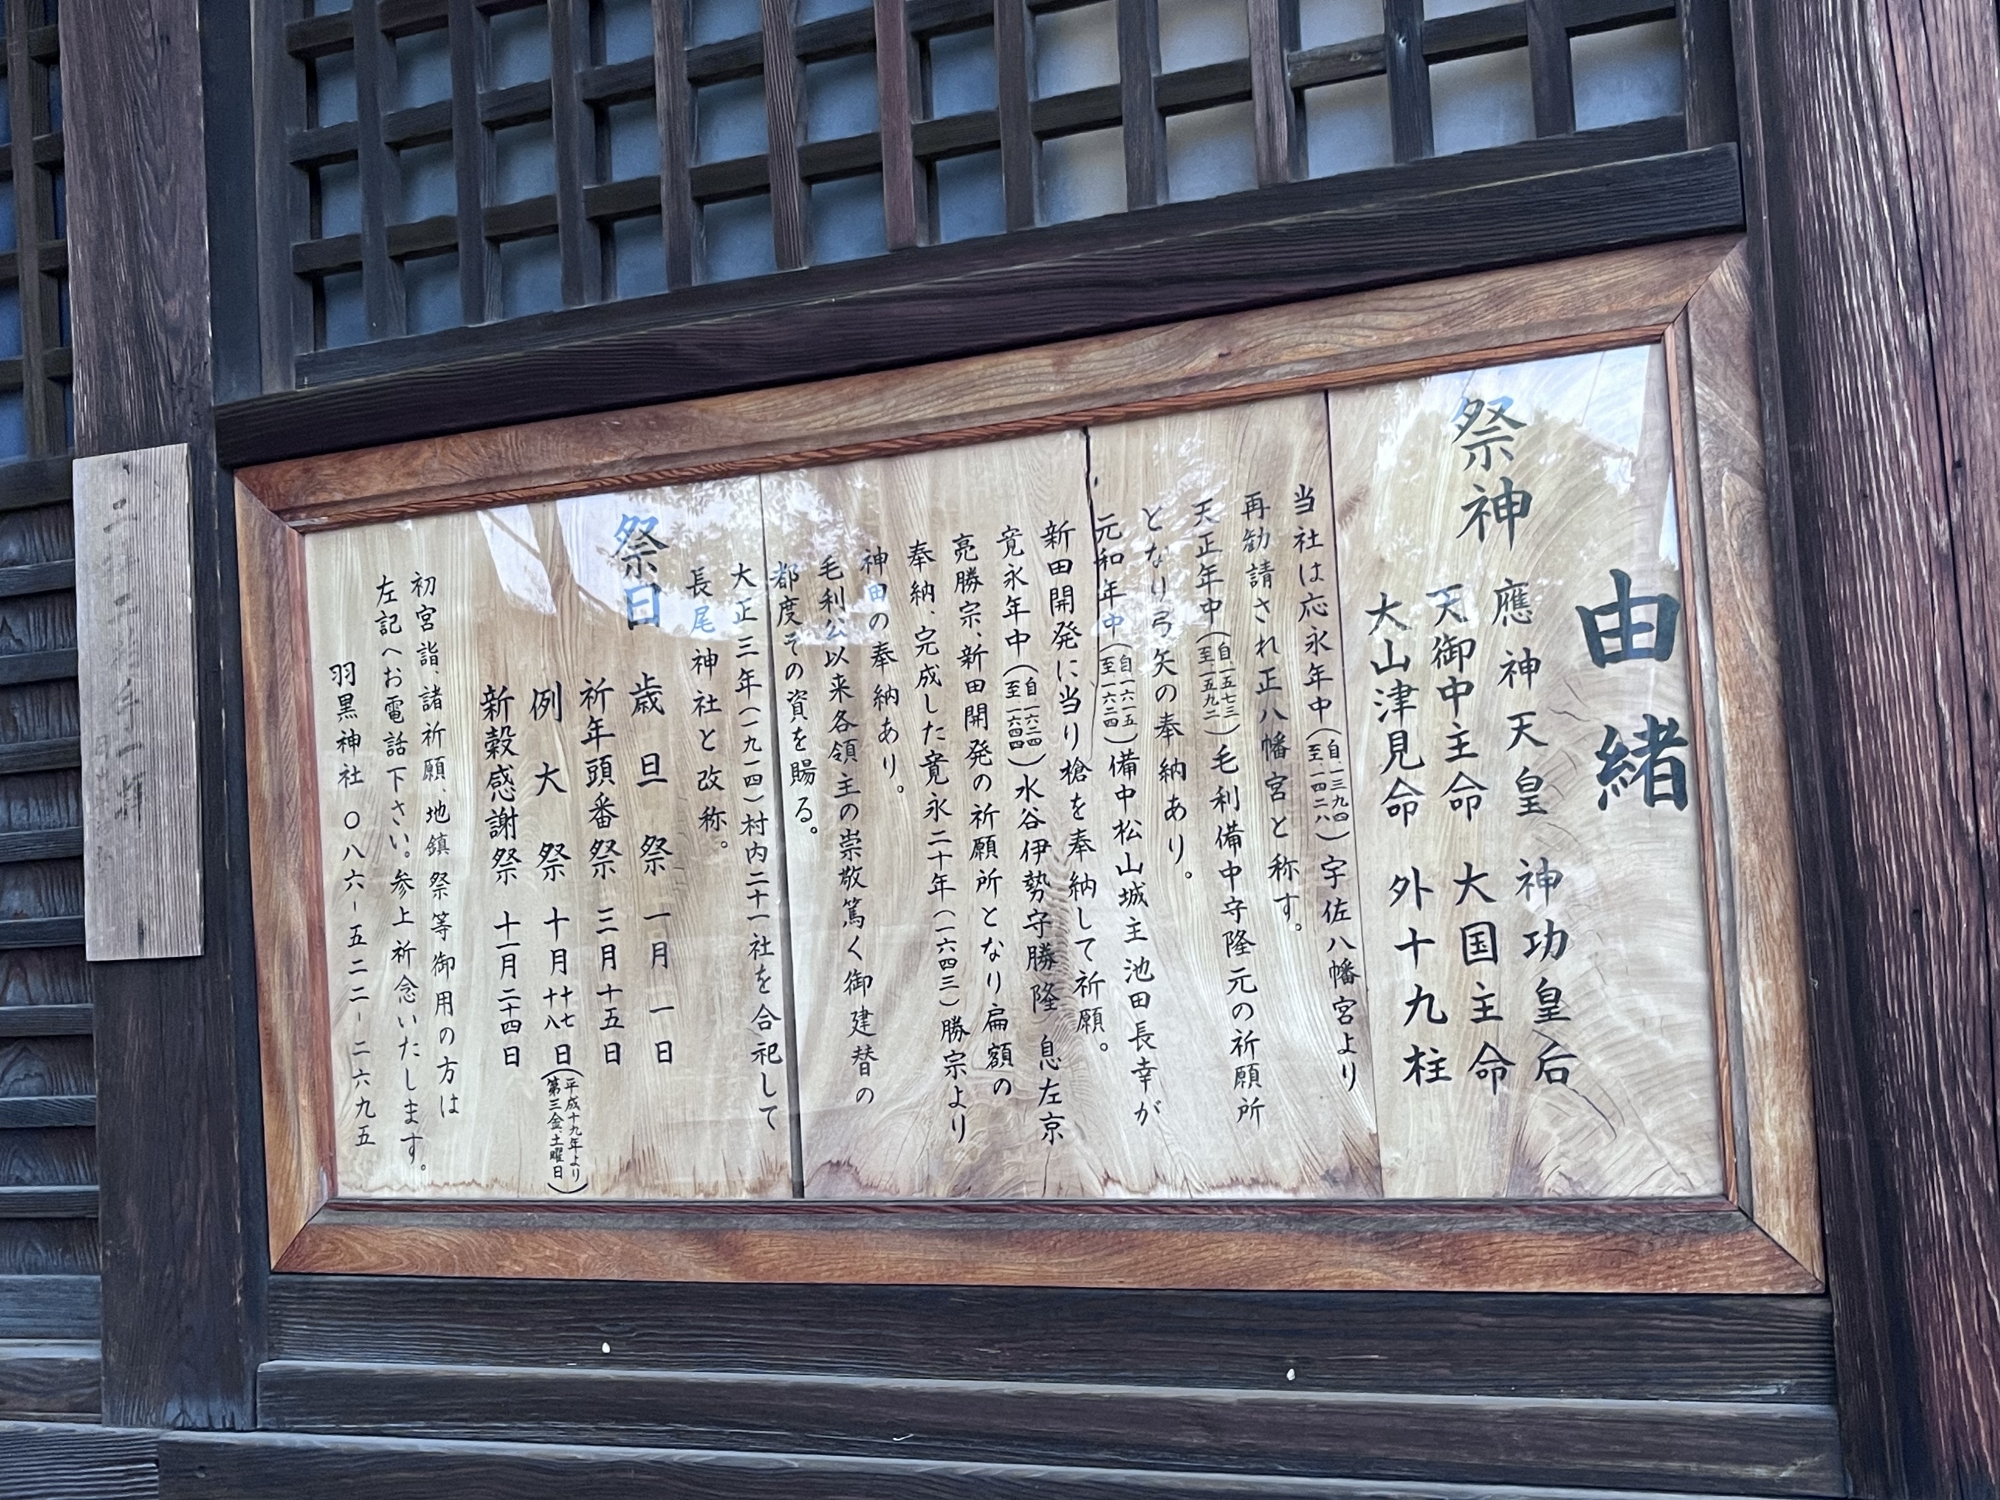 由緒
祭神 應神天皇 神功皇后
天御中主命 大国主命
大山津見命 外十九柱
当社は応永年中(自一三九四至一四二八)宇佐八幡宮より
再勧請され正八幡宮と称す。
天正年中(自一五七三至一五九二)毛利備中守隆元の祈願所
となり弓矢の奉納あり。
元和年中(自一六一五至一六二四)備中松山城主池田長幸が
新田開発に当り槍を奉納して祈願。
寛永年中(自一六二四至一六四四)水谷伊勢守勝隆 息左京
亮勝宗、新田開発の祈願所となり扁額の
奉納、完成した寛永二十年(一六四三)勝宗より
神田の奉納あり。
毛利公以来各領主の崇敬篤く御建替の
都度その資を賜る。
大正三年(一九一四)村内二十一社を合祀して
長尾神社と改称。
祭日 歳旦祭 一月一日
祈年頭番祭 三月十五日
例大祭 十月十七十八日(平成十九年より第三金、土曜日)
新穀感謝祭 十一月二十四日
初宮詣、諸祈願、地鎮祭等御用の方は
左記へお電話下さい。参上祈念いたします。
羽黒神社 〇八六-五二二-二六九五